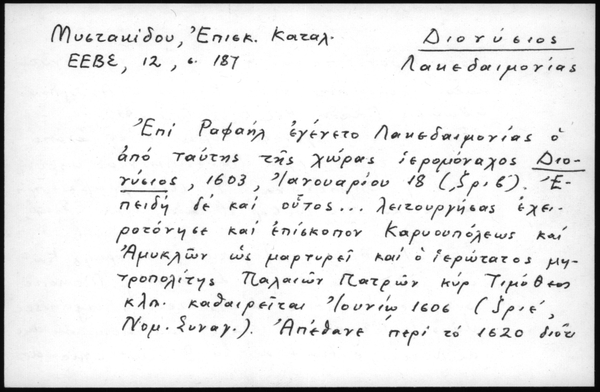 Μυστακίδου, Ἐπισκ. Καταλ.
ΕΕΒΣ, 12, σ. 187
Διονύσιος
Λακεδαιμονίας
Ἐπί Ραφαήλ ἐγένετο Λακεδαιμονίας ὁ
ἀπό ταύτης τῆς χώρας ἱερομόναχος Διο-
νύσιος, 1603, Ἰανουαρίου 18 (͵ζριβ΄). Ἐ-
πειδή δέ καί οὗτος... λειτουργήσας ἐχει-
ροτόνησε καί ἐπίσκοπον Καρυουπόλεως καί
Ἀμυκλῶν ὡς μαρτυρεῖ καί ὁ ἱερώτατος μη-
τροπολίτης Παλαιῶν Πατρῶν κύρ Τιμόθεος
κλπ. καθαιρεῖται Ἰουνίῳ 1606 (͵ζριέ,
Νομ. Συναγ.). Ἀπέθανε περί τό 1620 διότι